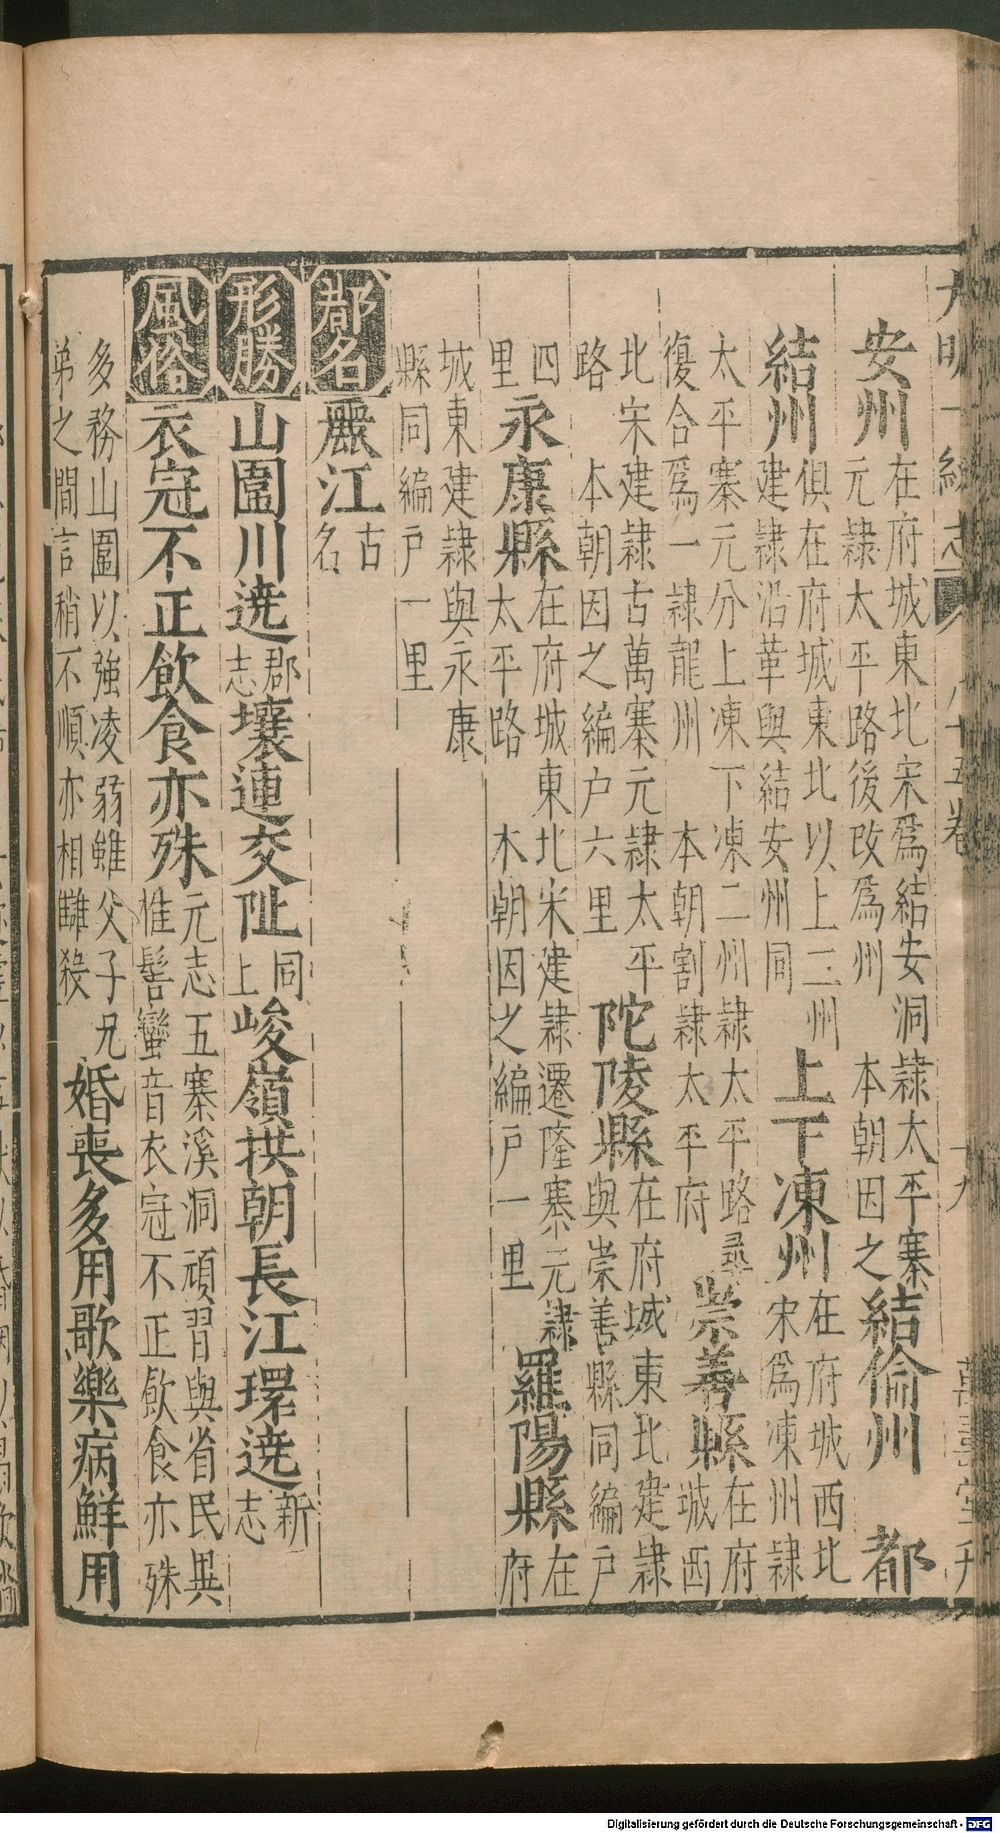 大明一統志 八十五卷 十九 萬壽堂刊
安州 在府城東北宋爲結安洞隷太平寨 元隷太平路後改爲州 本朝因之 結倫州 都
結州 俱在府城東北以上二州 建隷沿革與結安州同 上下凍州 在府城西北 宋爲凍州隷
太平寨元分上凍下凍二州隷太平路尋 復合爲一隷龍州 本朝割隷太平府 崇善縣 在府 城西
北宋建隷古萬寨元隷太平 路 本朝因之編户六里 陀陵縣 在府城東北建隷 與崇善縣同編户
四 里 永康縣 在府城東北宋建隷遷隆寨元隷 太平路 本朝因之編户一里 羅陽縣 在 府
城東建隷與永康 縣同編户一里
郡名 麗江 古 名
形勝 山圍川遶 郡 志 壤連交阯 同 上 峻嶺拱朝長江環遶 新 志
風俗 衣冠不正飲食亦殊 元志五寨溪洞頑習與省民異 惟髻蠻音衣冠不正飲食亦殊
多務山圍以強凌弱雖父子兄 弟之間言稍不順亦相讎殺 婚喪多用歌樂病鮮用
Digitalisierung gefördert durch die Deutsche Forschungsgemeinschaft - DFG